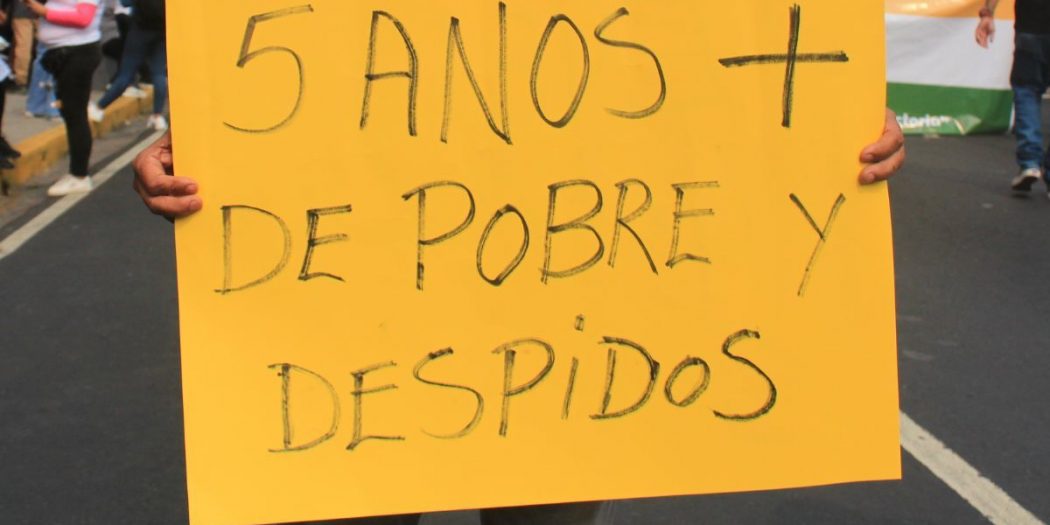 5 ANOS +
DE POBRE Y
DESPiDOS